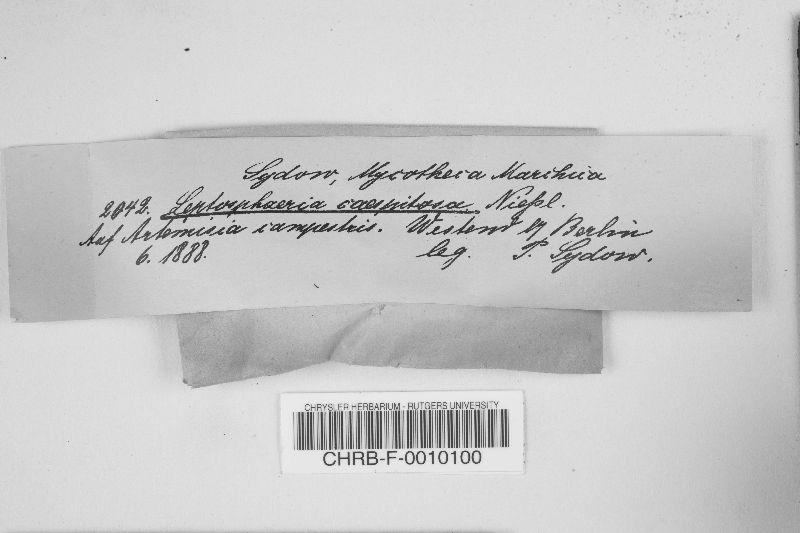 Sydow, Mycotheca Marchica
2042. Leptosphaeria caespitosa Nießl.
Auf Artemisia campestris. Westend b/ Berlin
6. 1888. leg. P. Sydow.
CHRYSLER HERBARIUM - RUTGERS UNIVERSITY
CHRB-F-0010100